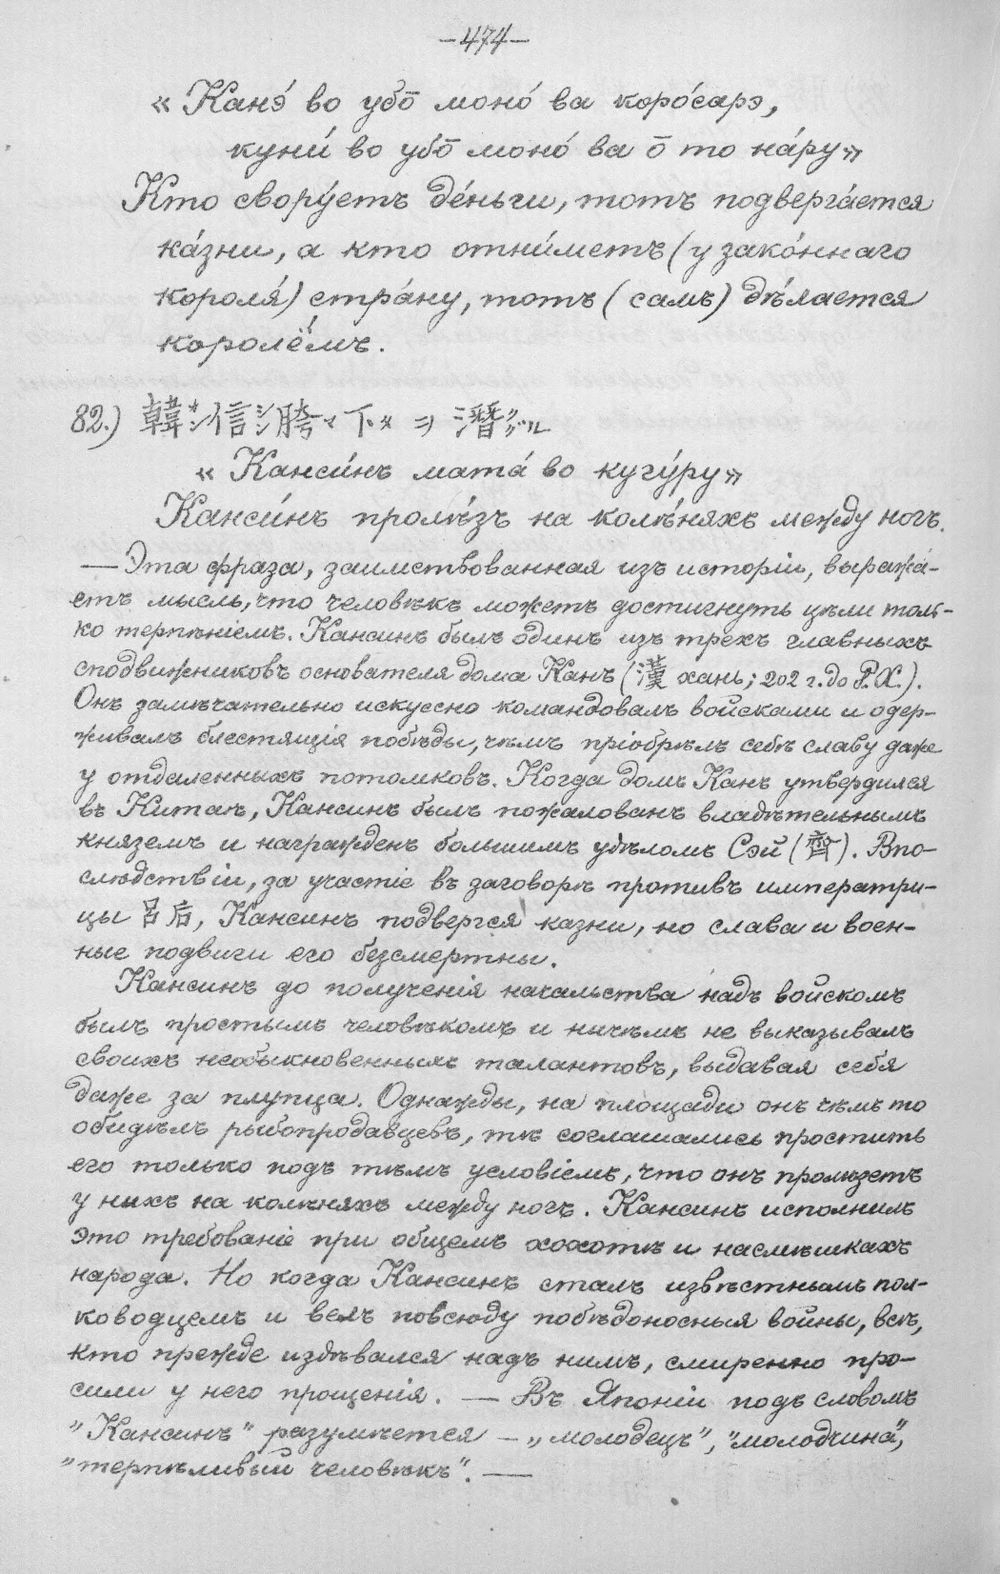 —474—
«Канэ́ во убо̄ моно́ ва коро́сарэ,
куни́ во убо̄ моно́ ва о̄ то на́ру»
Кто свору́етъ де́ньги, тотъ подверга́ется
ка́зни, а кто отни́метъ (у зако́ннаго
короля́) стра́ну, тотъ (самъ) дѣлается
королёмъ.
82.) 韓カン信シン胯マタ下ヲ潜クグル
«Канси́нъ мата́ во кугу́ру»
Канси́нъ пролѣ́зъ на колѣ́няхъ между ногъ.
— Эта фраза, заимствованная изъ исторіи, выража́-
етъ мысль, что человѣкъ можетъ достигнуть цѣли толь-
ко терпѣніемъ. Кансинъ былъ одинъ изъ трехъ главныхъ
сподвижниковъ основателя дома Канъ (漢 хань; 202 г. до Р.Х.).
Онъ замѣчательно искусно командовалъ войсками и одер-
живалъ блестящія побѣды, чѣмъ пріобрѣлъ себѣ славу даже
у отдаленныхъ потомковъ. Когда домъ Канъ утвердился
въ Китаѣ, Кансинъ былъ пожалованъ владѣтельнымъ
княземъ и награжденъ большимъ удѣломъ Сэй (齊). Впо-
слѣдствіи, за участіе въ заговорѣ противъ императри-
цы 呂后, Кансинъ подвергся казни, но слава и воен-
ные подвиги его безсмертны.
Кансинъ до полученія начальства надъ войскомъ
былъ простымъ человѣкомъ и ничѣмъ не выказывалъ
своихъ необыкновенныхъ талантовъ, выдавая себя
даже за глупца. Однажды, на площади онъ чѣмъ то
обидѣлъ рыбопродавцевъ, тѣ соглашались простить
его только подъ тѣмъ условіемъ, что онъ пролѣзетъ
у нихъ на колѣняхъ между ногъ. Кансинъ исполнилъ
это требованіе при общемъ хохотѣ и насмѣшкахъ
народа. Но когда Кансинъ сталъ извѣстнымъ пол-
ководцемъ и велъ повсюду побѣдоносныя войны, всѣ,
кто прежде издѣвался надъ нимъ, смиренно про-
сили у него прощенія. — Въ Японіи подъ словомъ
"Кансинъ" разумѣется — "молодецъ", "молодчина",
"терпѣливый человѣкъ". —